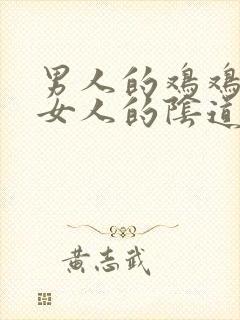 男人的鸡鸡
女人的陰道
黃志武